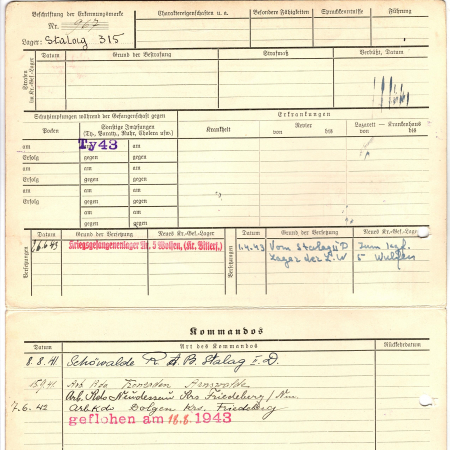 Beschriftung der Erkennungsmarke
Nr. 967
Lager: Stalag 315
Charaktereigenschaften u. a.
Besondere Fähigkeiten
Sprachkenntnisse
Führung
Strafen im Kr.-Gef.-Lager
Datum
Grund der Bestrafung
Strafmaß
Verbüßt, Datum
Schutzimpfungen während der Gefangenschaft gegen
Erkrankungen
Pocken
Sonstige Impfungen
(Ty., Paraty., Ruhr, Cholera usw.)
Krankheit
Revier
von bis
Lazarett — Krankenhaus
von bis
am Ty43 am
Erfolg gegen gegen
am am am
Erfolg gegen gegen
am am
gegen gegen
am am
gegen gegen
Versetzungen
Datum
Grund der Versetzung
Neues Kr.-Gef.-Lager
Versetzungen
Datum
Grund der Versetzung
Neues Kr.-Gef.-Lager
6.43 Kriegsgefangenenlager Nr. 5 Wolfen, (Kr. Bitterf.)
1.4.43 Vom Stalag II D
Lager der L.W
zum
5 Wolfen
Kommandos
Datum
Art des Kommandos
Rückkehrdatum
8.8.41 Schöwalde R. A. B. Stalag II. D.
Arb Kdo
Arb. Kdo Krs Friedeberg / Nm.
7.6.42 Arb Kdo Dolgen Krs. Friedeberg
geflohen am 18.8.1943